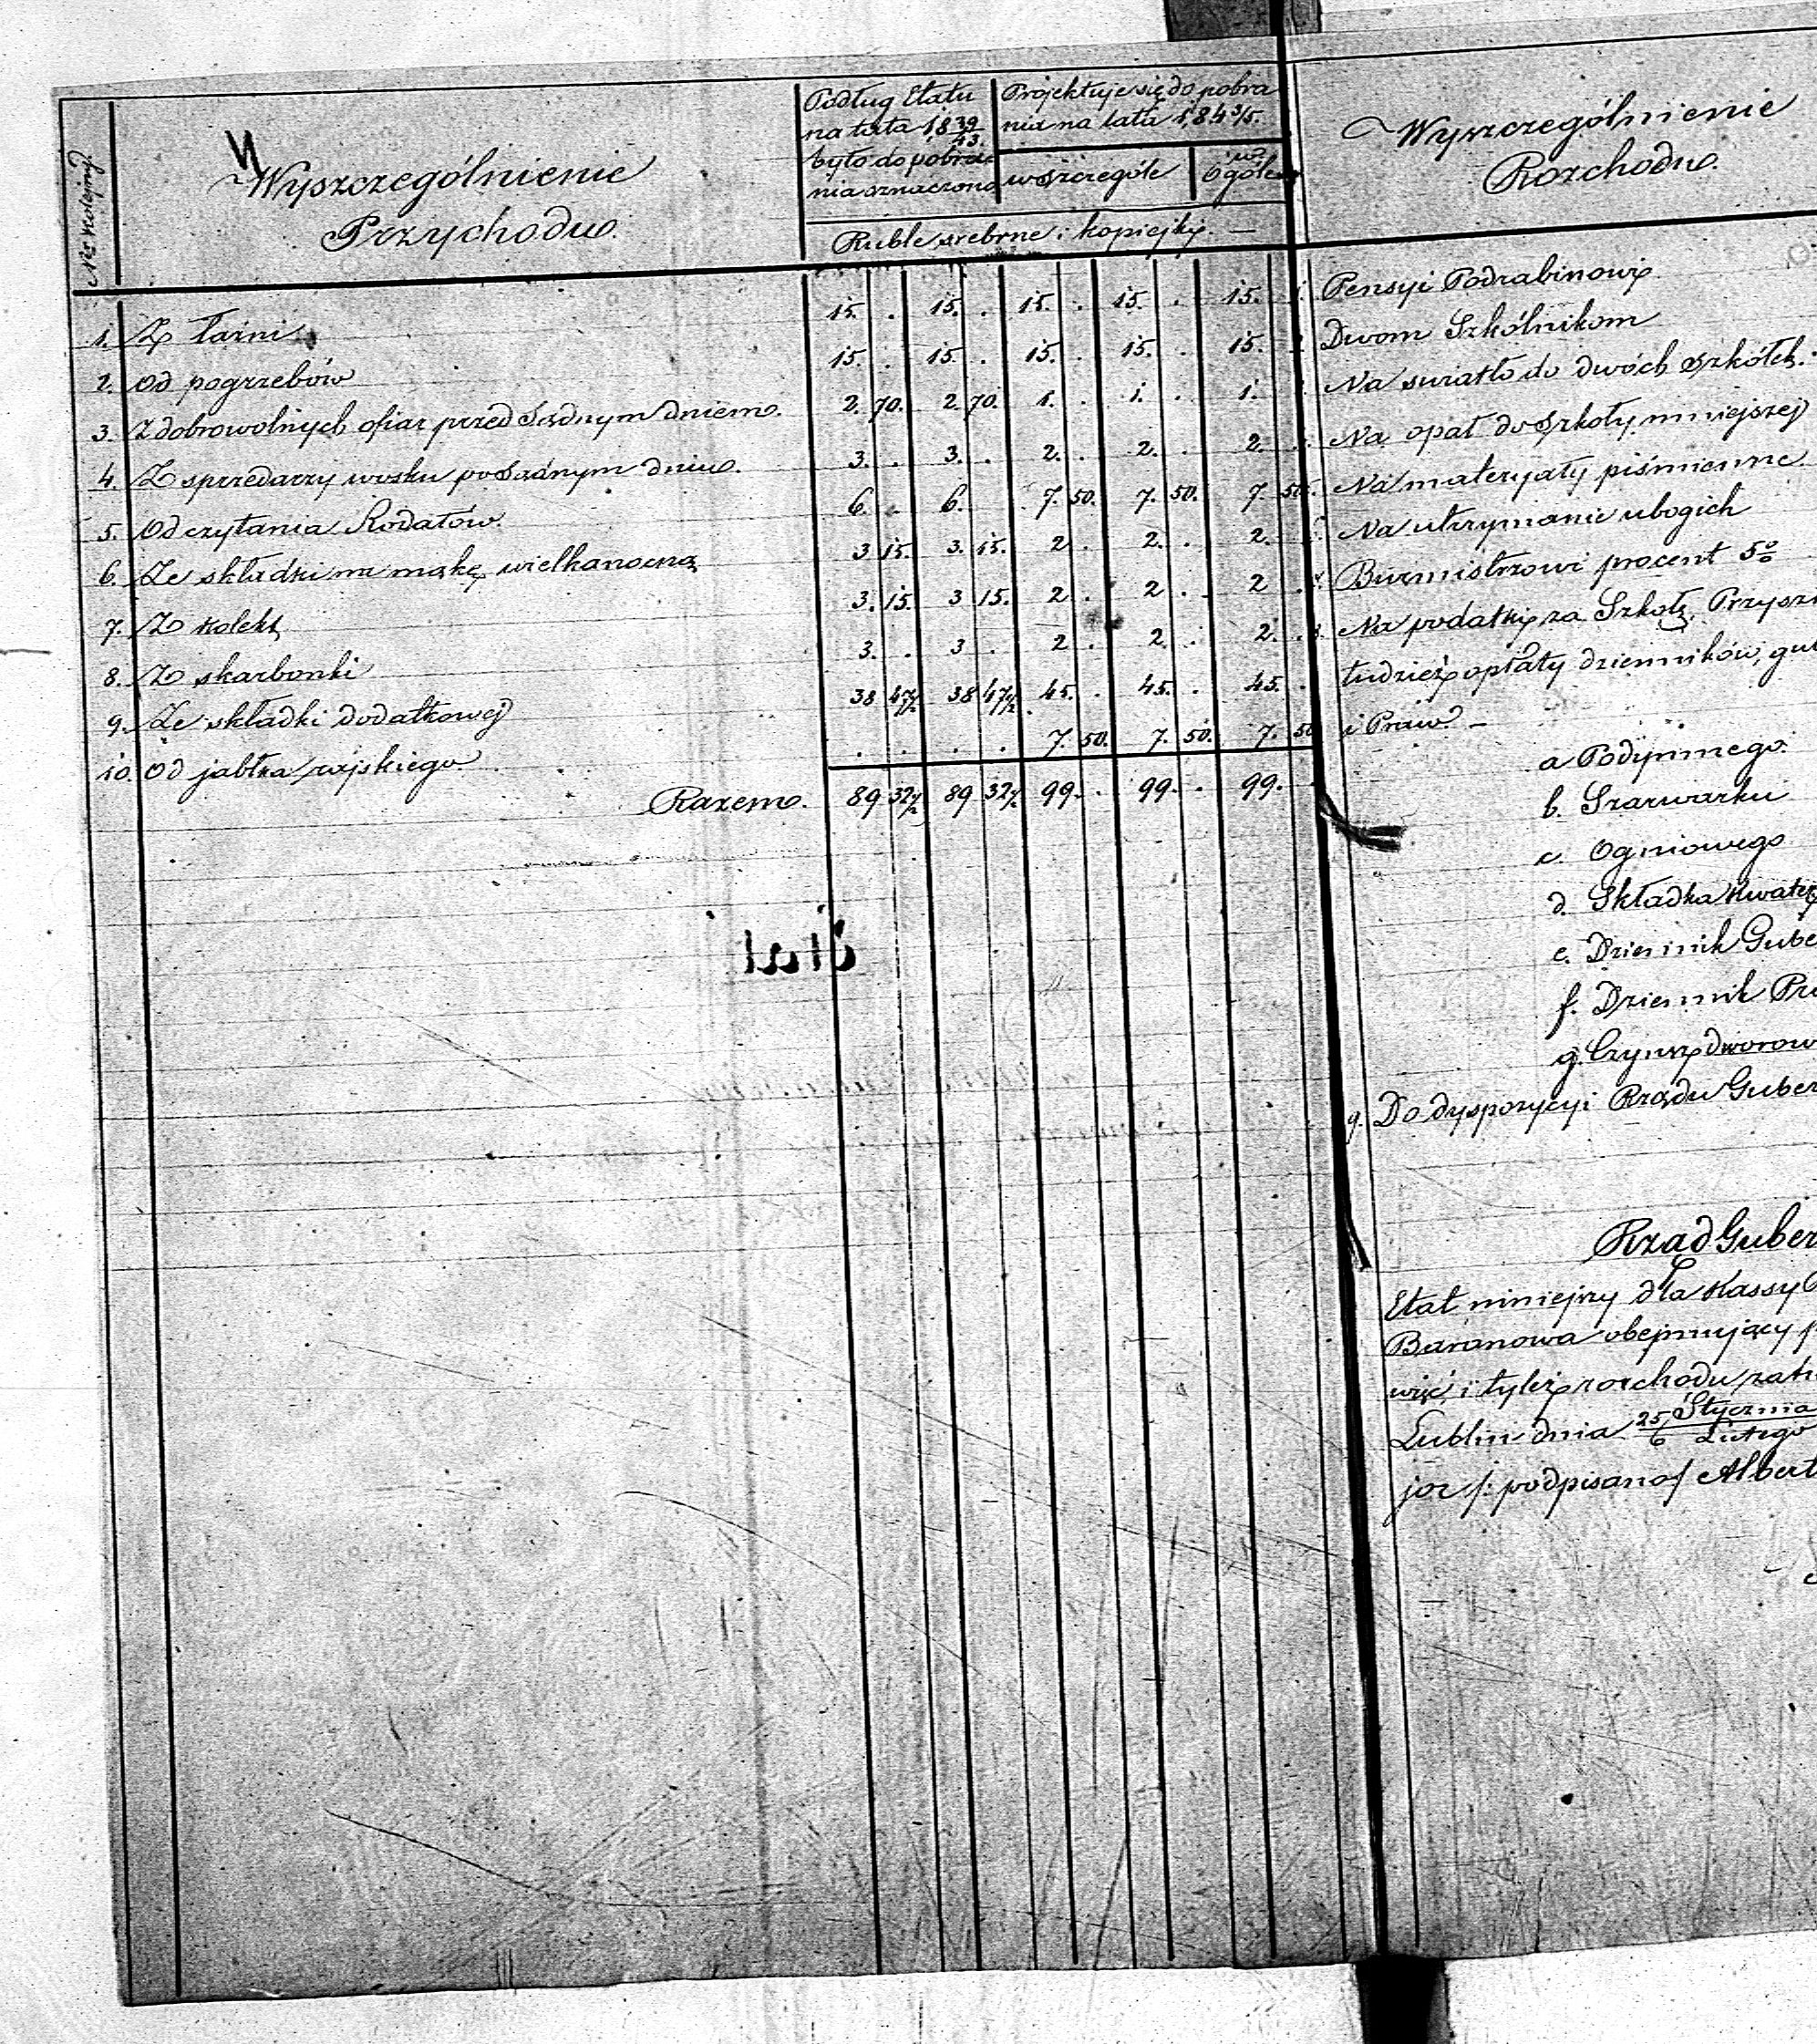 Nr kolejny
Wyszczególnienie
Przychodu.
Podług Etatu
na lata 18 39/43.
było do pobra-
nia sznaczono
Projektuje się do pobra
nia na lata 184 3/5.
wszczególe
w
Ogóle
Ruble srebrne i kopiejki. —
1. Z łaźni 15. . 15. . 15. . 15. . 15.
2. Od pogrzebów 15. . 15. . 15. . 15. . 15.
3. Z dobrowolnych ofiar przed Sądnym dniem. 2. 70. 2. 70. 1. . 1. . 1.
4. Z sprzedarzy wosku po Sądnym dniu. 3. . 3. . 2. . 2. . 2.
5. Od czytania Rodałów. 6. . 6. . 7. 50. 7. 50. 7. 50.
6. Ze składki na mąkę wielkanocną 3 15. 3. 15. 2 . 2. . 2.
7. Z kolekt 3. 15. 3 15. 2 . 2 . 2 .
8. Z skarbonki 3. . 3 . 2 . 2. . 2. .
9. Ze składki dodatkowej 38 47½ 38 47½ 45. . 45. . 45. .
10. Od jabłka rajskiego . . . . 7. 50. 7. 50. 7. 50
Razem. 89 32½ 89 32½ 99. . 99. . 99.
Wyszczególnienie
Rozchodu.
Pensyi Podrabinowi
Dwom Szkólnikom
Na swiatło do dwóch szkółek.
Na opał do szkoły mniejszej
Na materyały piśmienne.
Na utrzymanie ubogich
Burmistrzowi procent 5%
Na podatki za Szkołę,
tudzież opłaty dzienników,
i Praw —
a Podymnego.
b. Szarwarku
c. Ogniowego
d. Składka Kwater
e. Dziennik Gube
f. Dziennik Pr
g. Czynsz dworow
9. Do dyspozycyi Rządu Guber
Rząd Guber
Etat niniejszy dla Kassy
Baranowa obejmujący
więć i tyleż rozchodu zat
Lublin dnia 25/6 Stycznia/Lutego
jor /: podpisano/ Albert